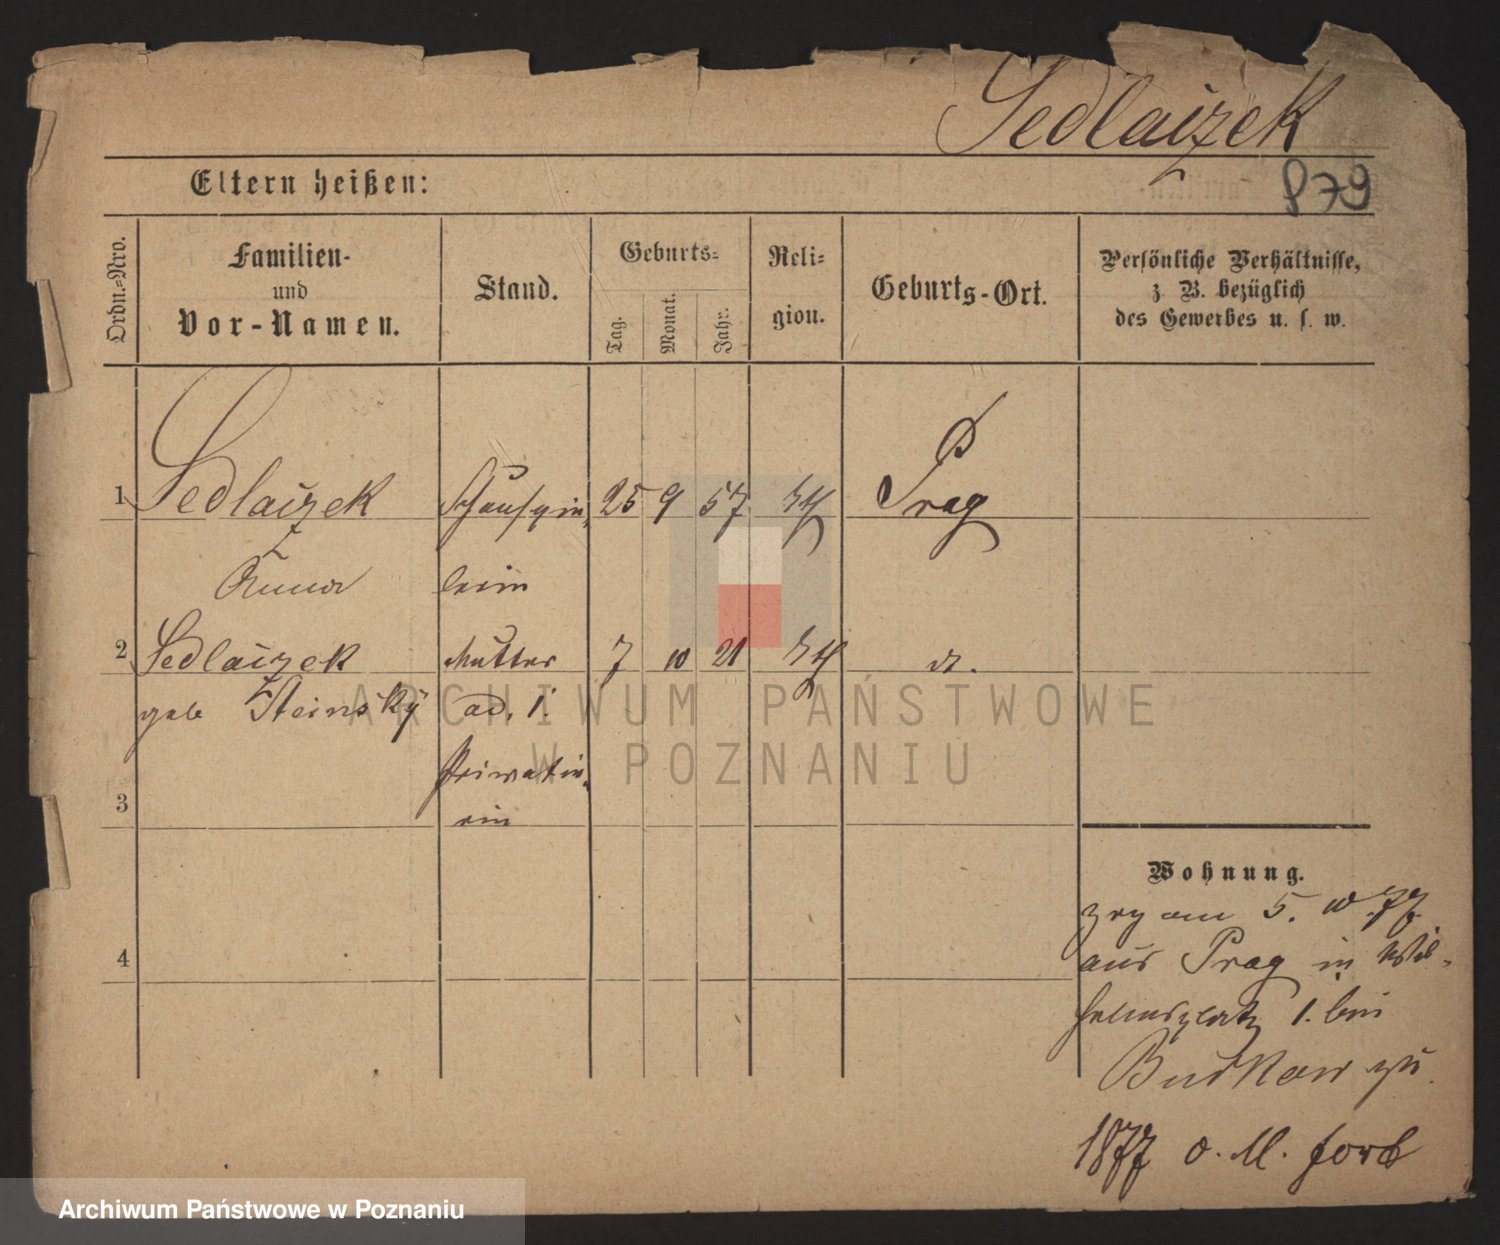 Sedlaizek
879
Eltern heißen:
Ordn.-Nro.
Familien-
und
Vor-Namen.
Stand.
Geburts-
Tag.
Monat.
Jahr.
Reli-
gion.
Geburts-Ort.
Persönliche Verhältnisse,
z. B. bezüglich
des Gewerbes u. s. w.
1 Sedlaizek Schauspie- 25 9 57 Prag
Anna lerin
2 Sedlaizek Mutter 7 10 21
geb Steinsky ad. 1
Privatie-
3 rin
4
Wohnung.
zog am 5. 10 77
aus Prag in Wil-
helmsplatz 1. bei
Buskow zu
1877 o. M. fort
ARCHIWUM PAŃSTWOWE
W POZNANIU
Archiwum Państwowe w Poznaniu